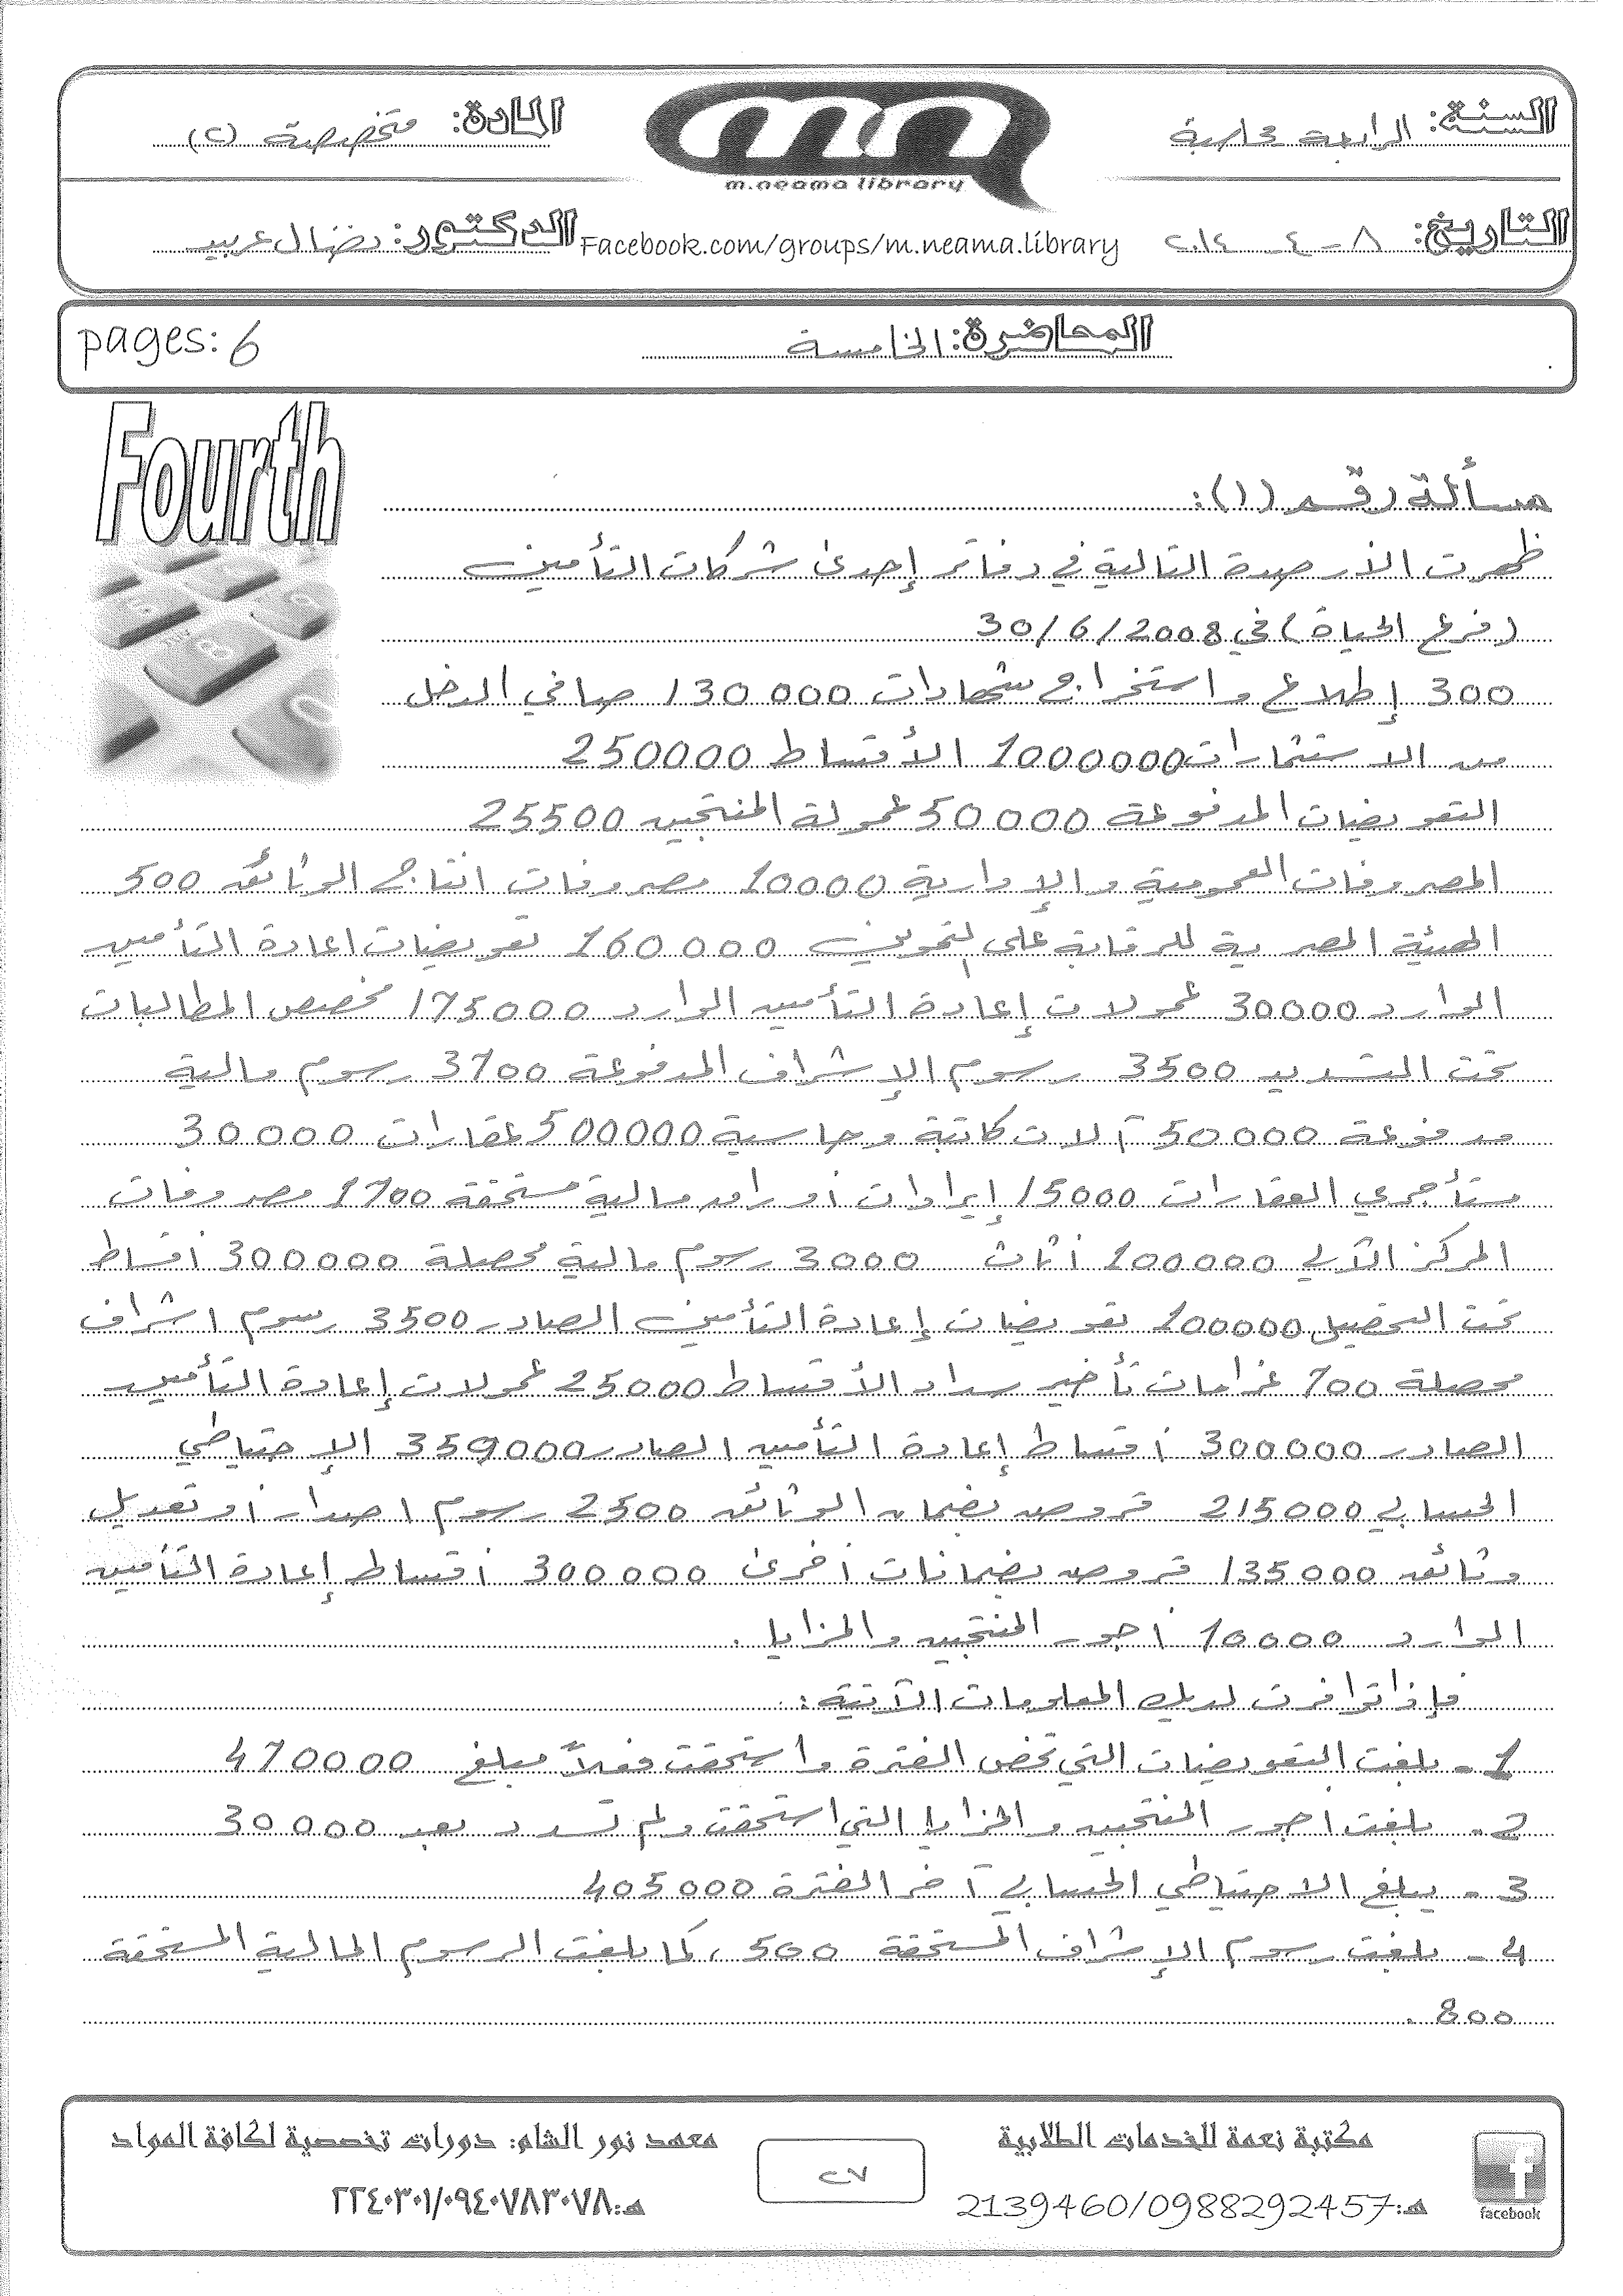 السنة: الرابعة محاسبة
المادة: متخصصة (٢)
m.neama library
التاريخ: ٨ - ٤ - ٢٠١٤
Facebook.com/groups/m.neama.library
الدكتور: نضال عربيد
المحاضرة: الخامسة
pages: 6
Fourth
مسألة رقم (١):
ظهرت الأرصدة التالية في دفاتر إحدى شركات التأمين
(فرع الحياة) في 30/6/2008
300 إطلاع واستخراج شهادات 130000 صافي الدخل
من الاستثمارات 1000000 الأقساط 250000
التعويضات المدفوعة 50000 عمولة المنتجين 25500
المصروفات العمومية والإدارية 10000 مصروفات انتاج الوثائق 500
الهيئة المصرية للرقابة على 160000 تعويضات اعادة التأمين
الوارد 30000 عمولات إعادة التأمين الوارد 175000 مخصص المطالبات
تحت التسديد 3500 رسوم الإشراف المدفوعة 3700 رسوم مالية
مدفوعة 50000 آلات كاتبة وحاسبة 500000 عقارات 30000
مستأجري العقارات 15000 إيرادات أوراق مالية مستحقة 1700 مصروفات
المركز الآلي 100000 أثاث 3000 رسوم مالية محصلة 300000 أقساط
تحت التحصيل 100000 تعويضات إعادة التأمين الصادر 3500 رسوم اشراف
محصلة 700 غرامات تأخير سداد الأقساط 25000 عمولات إعادة التأمين
الصادر 300000 أقساط إعادة التأمين الصادر 359000 الإحتياطي
الحسابي 215000 قروض بضمان الوثائق 2500 رسوم اصدار أو تعديل
وثائق 135000 قروض بضمانات أخرى 300000 أقساط إعادة التأمين
الوارد 10000 أجور المنتجين والمزايا.
فإذا توافرت لديك المعلومات الآتية:
1- بلغت التعويضات التي تخص الفترة واستحقت فعلاً مبلغ 470000
2- بلغت اجور المنتجين والمزايا التي استحقت ولم تسدد بعد 30000
3- يبلغ الاحتياطي الحسابي آخر الفترة 405000
4- بلغت رسوم الإشراف المستحقة 500، كما بلغت الرسوم المالية المستحقة
800.
مكتبة نعمة للخدمات الطلابية
هـ: 2139460/0988292457
facebook
٢٧
معهد نور الشام: دورات تخصصية لكافة المواد
هـ: ٢٢٤٠٣٠١/٠٩٤٠٧٨٣٠٧٨